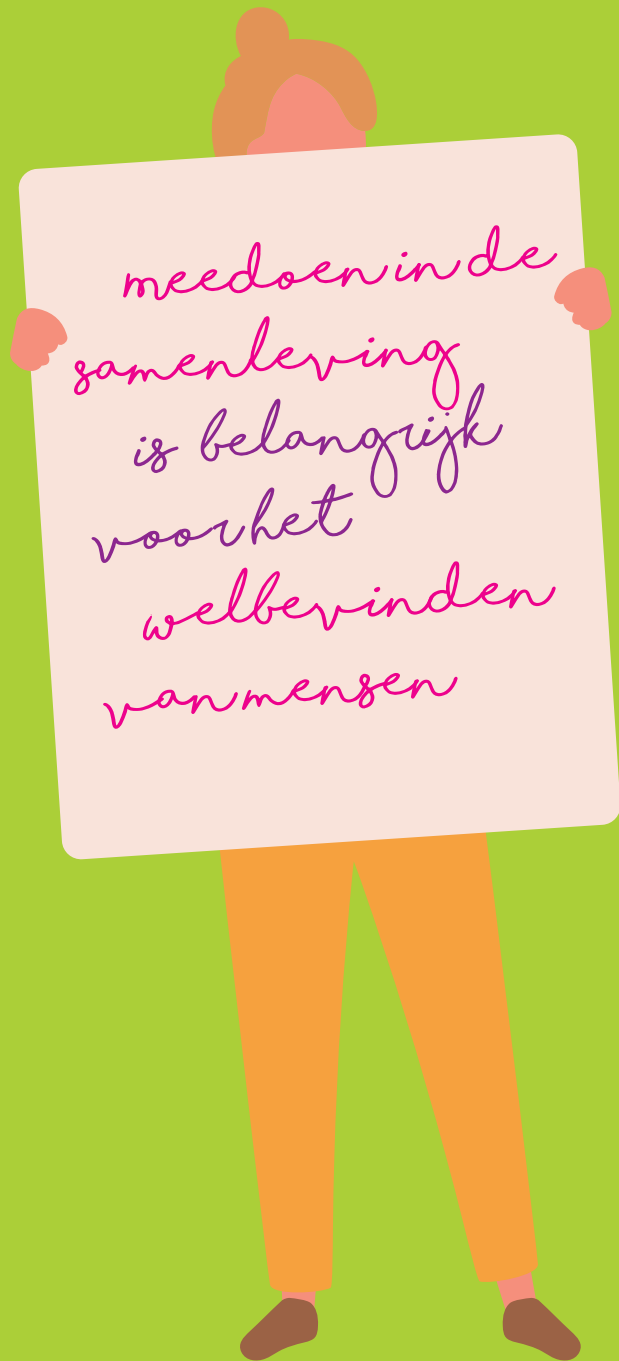 meedoen in de
samenleving
is belangrijk
voor het
welbevinden
van mensen